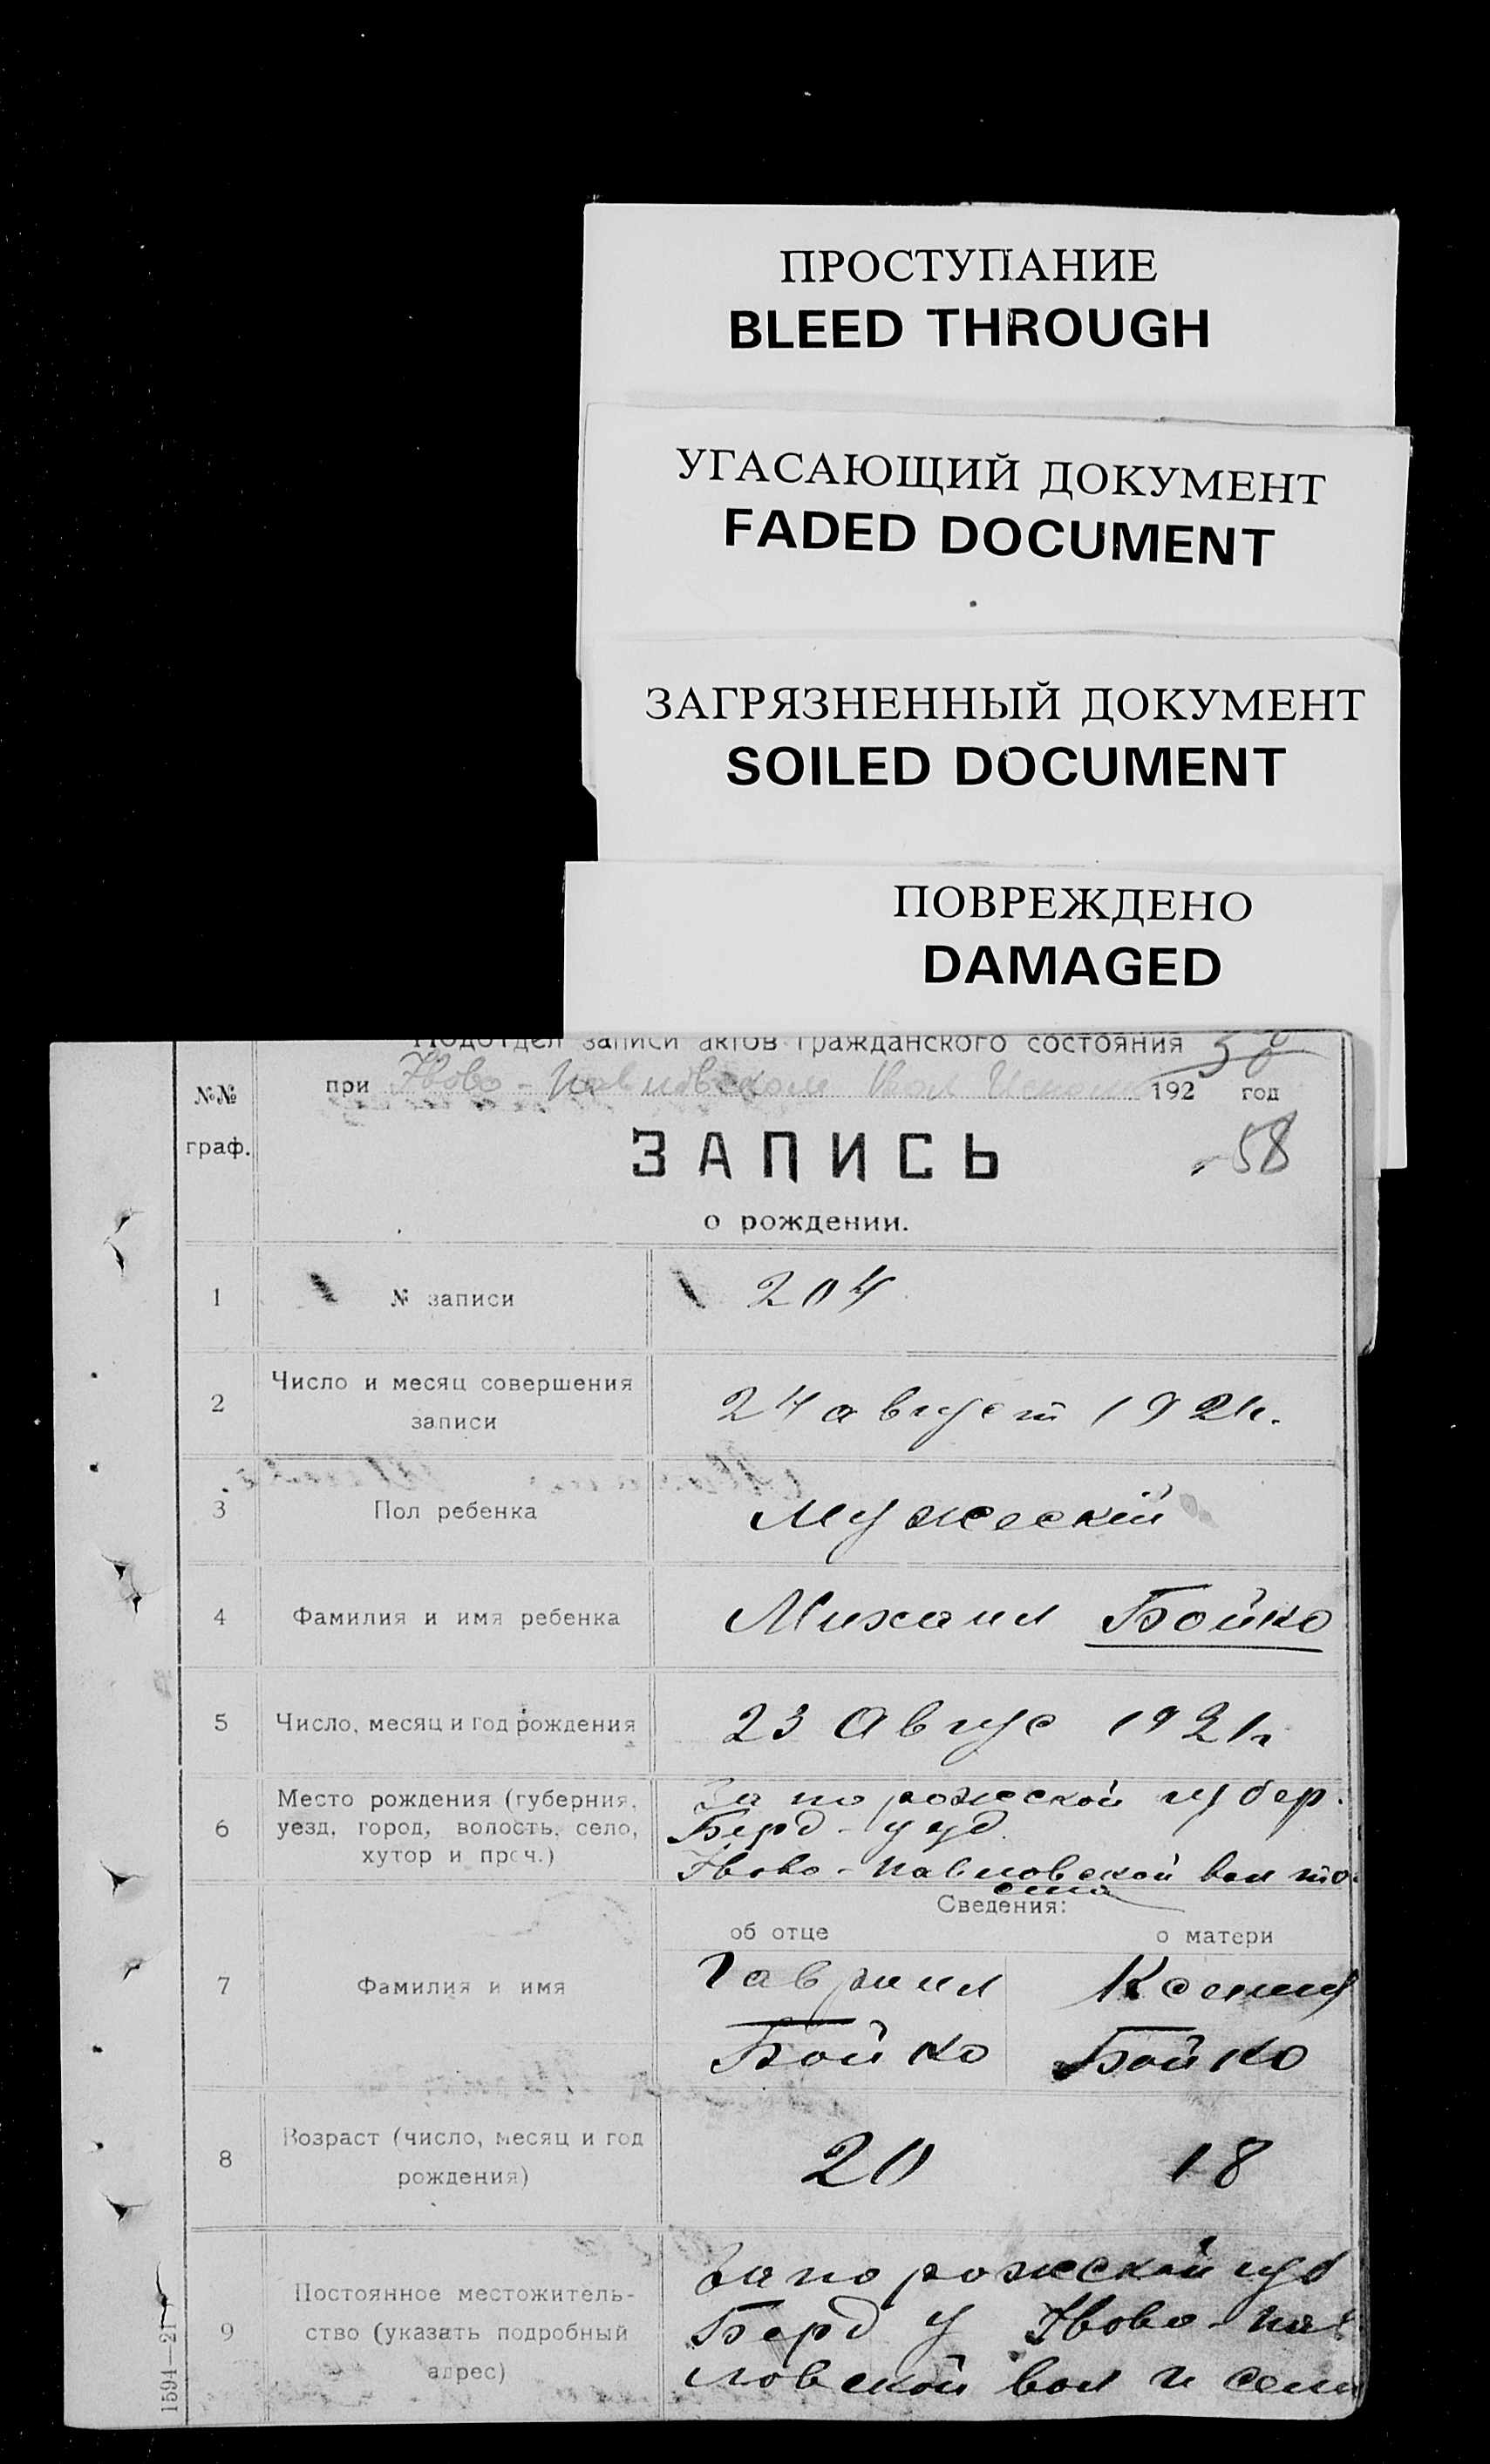 ПРОСТУПАНИЕ
BLEED THROUGH
УГАСАЮЩИЙ ДОКУМЕНТ
FADED DOCUMENT
ЗАГРЯЗНЕННЫЙ ДОКУМЕНТ
SOILED DOCUMENT
ПОВРЕЖДЕНО
DAMAGED
Подотдел записи актов гражданского состояния
при Ново-Павловском Вол 192 год
№№
граф.
58
ЗАПИСЬ
о рождении.
1 № записи 204
2 Число и месяц совершения
записи
24 август 1921г.
3 Пол ребенка мужеский
4 Фамилия и имя ребенка Михаил Бойко
5 Число, месяц и год рождения 23 Авгус 1921г
6 Место рождения (губерния,
уезд, город, волость, село,
хутор и проч.)
Запорожской губер.
Берд-уезд
Ново-Павловской вол то
села
Сведения:
об отце о матери
7 Фамилия и имя
Гавриил Ксения
Бойко Бойко
8 Возраст (число, месяц и год
рождения)
20 18
9 Постоянное местожитель-
ство (указать подробный
адрес)
Запорожской губ
Берд у Ново-Пав
ловской вол и села
1594—21г